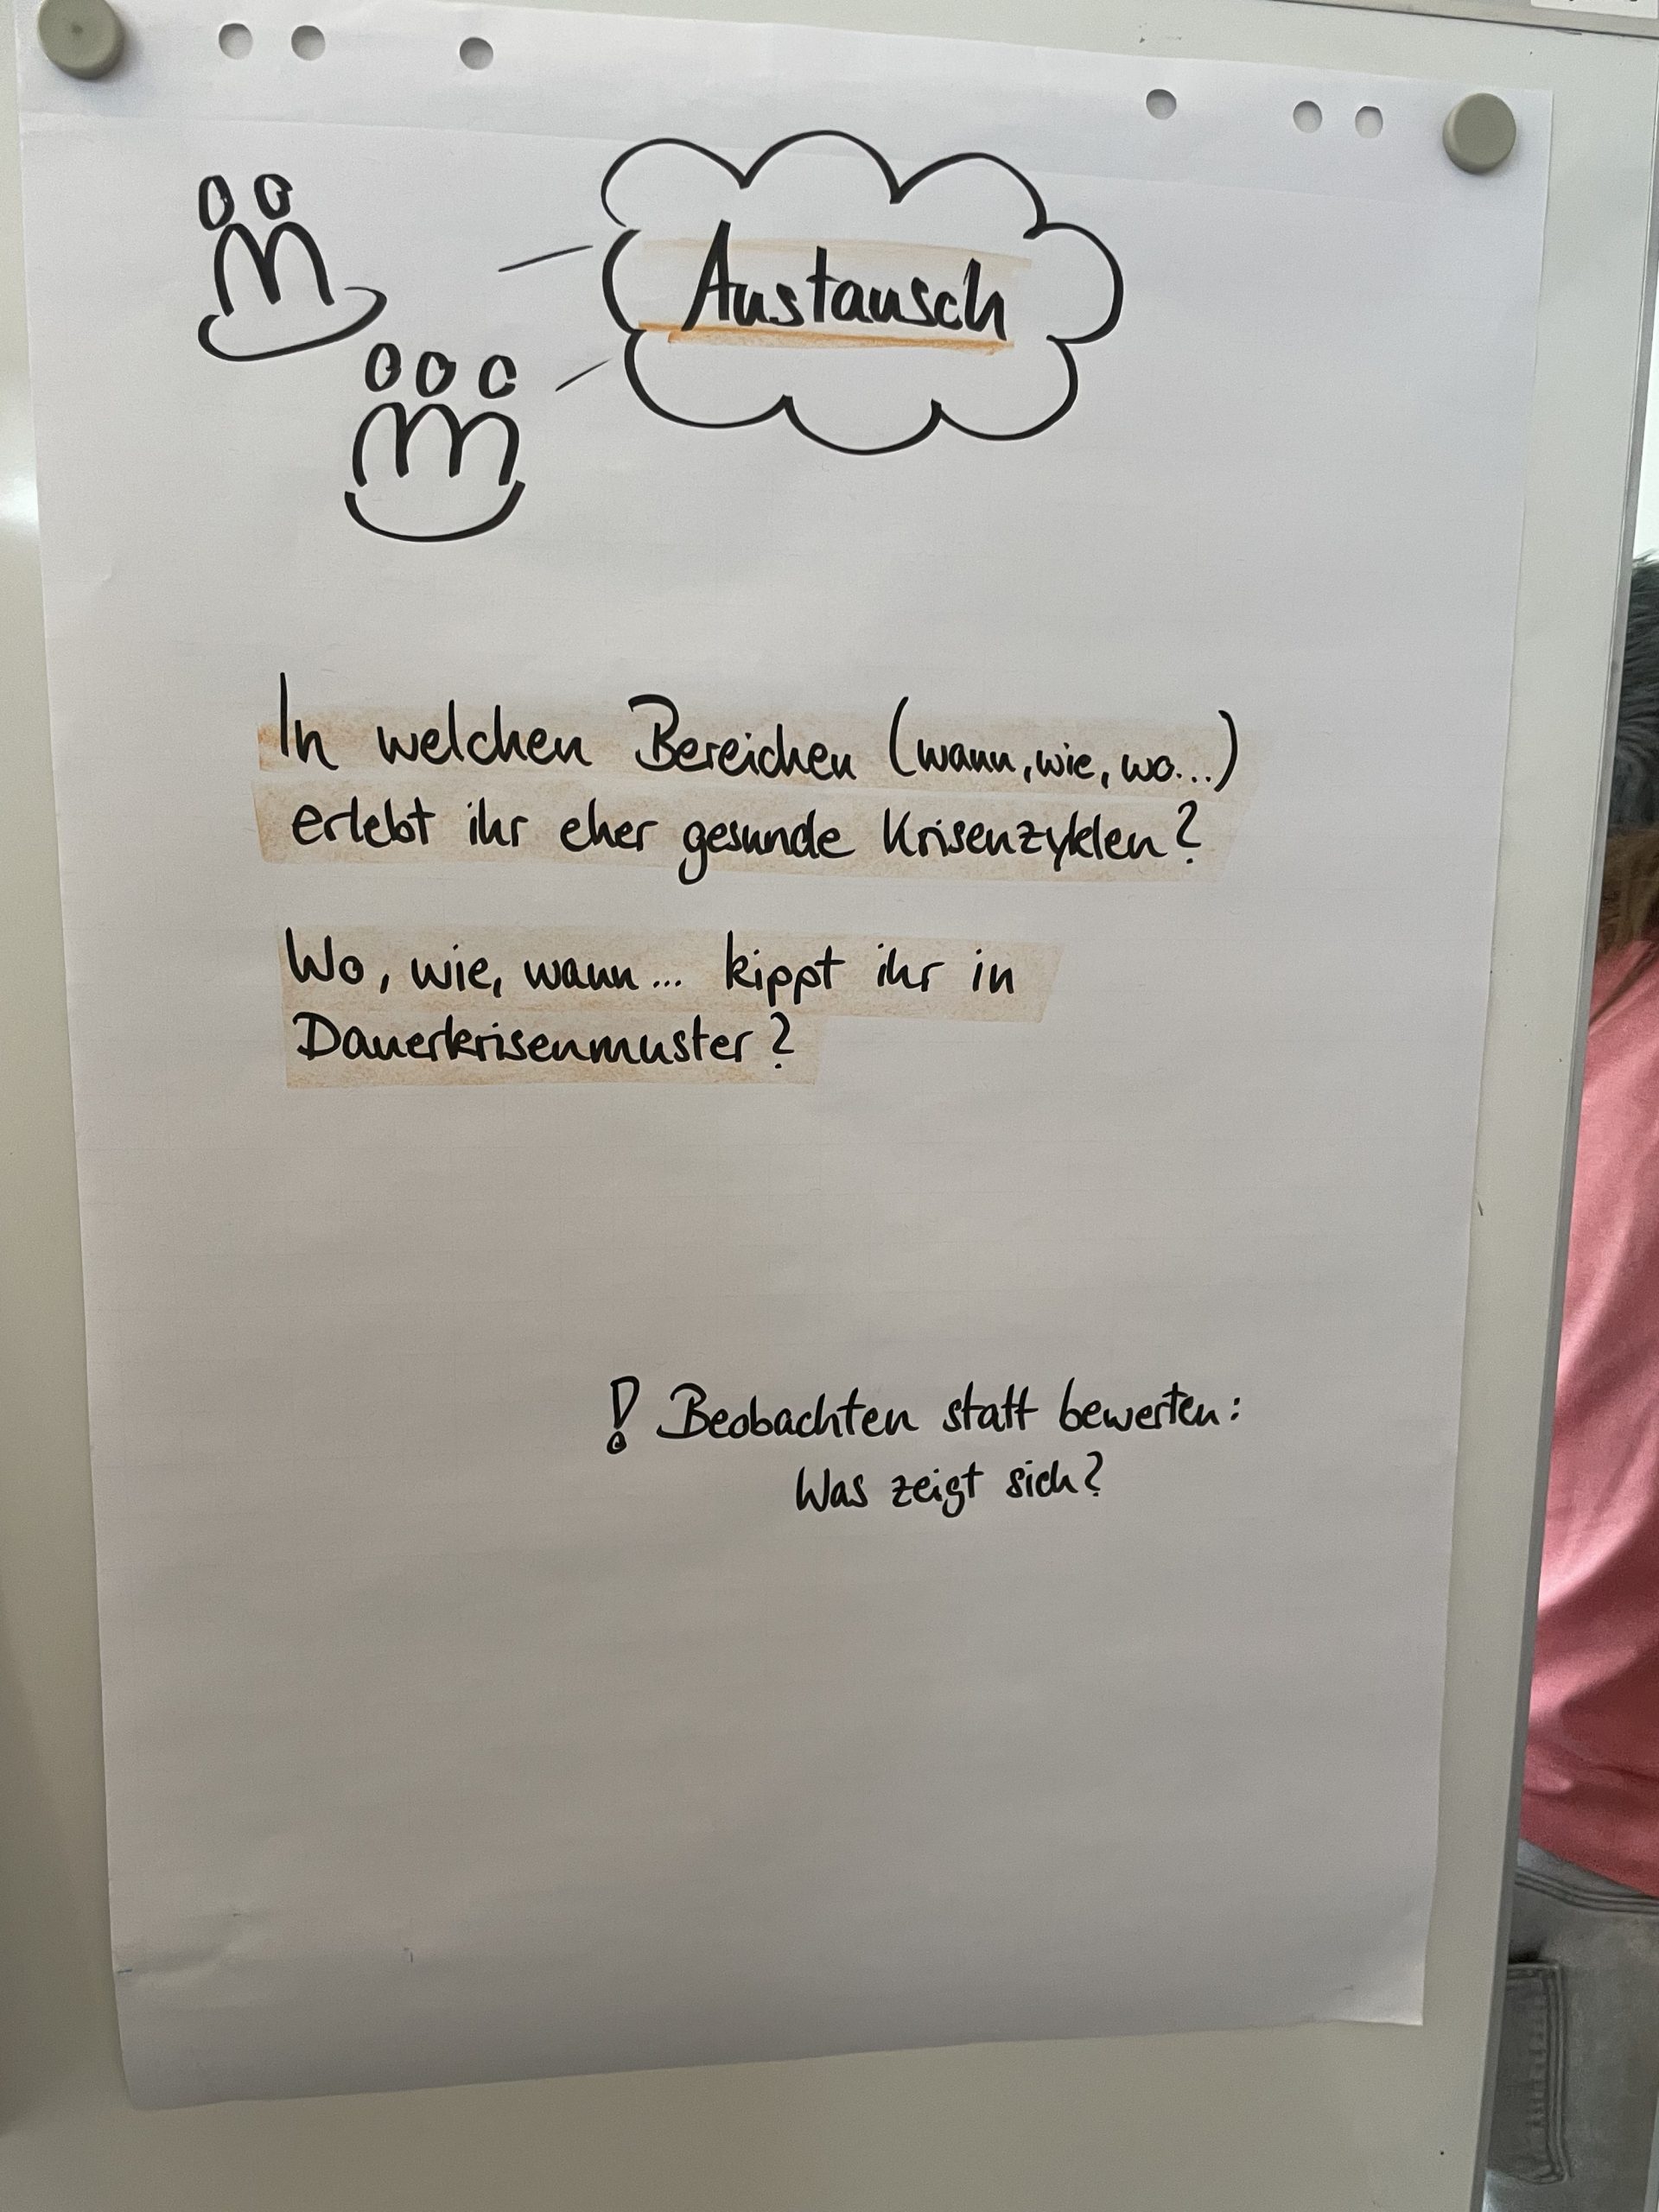 Austausch
In welchen Bereichen (wann, wie, wo...)
erlebt ihr eher gesunde Krisenzyklen?
Wo, wie, wann... kippt ihr in
Dauerkrisenmuster?
! Beobachten statt bewerten:
Was zeigt sich?